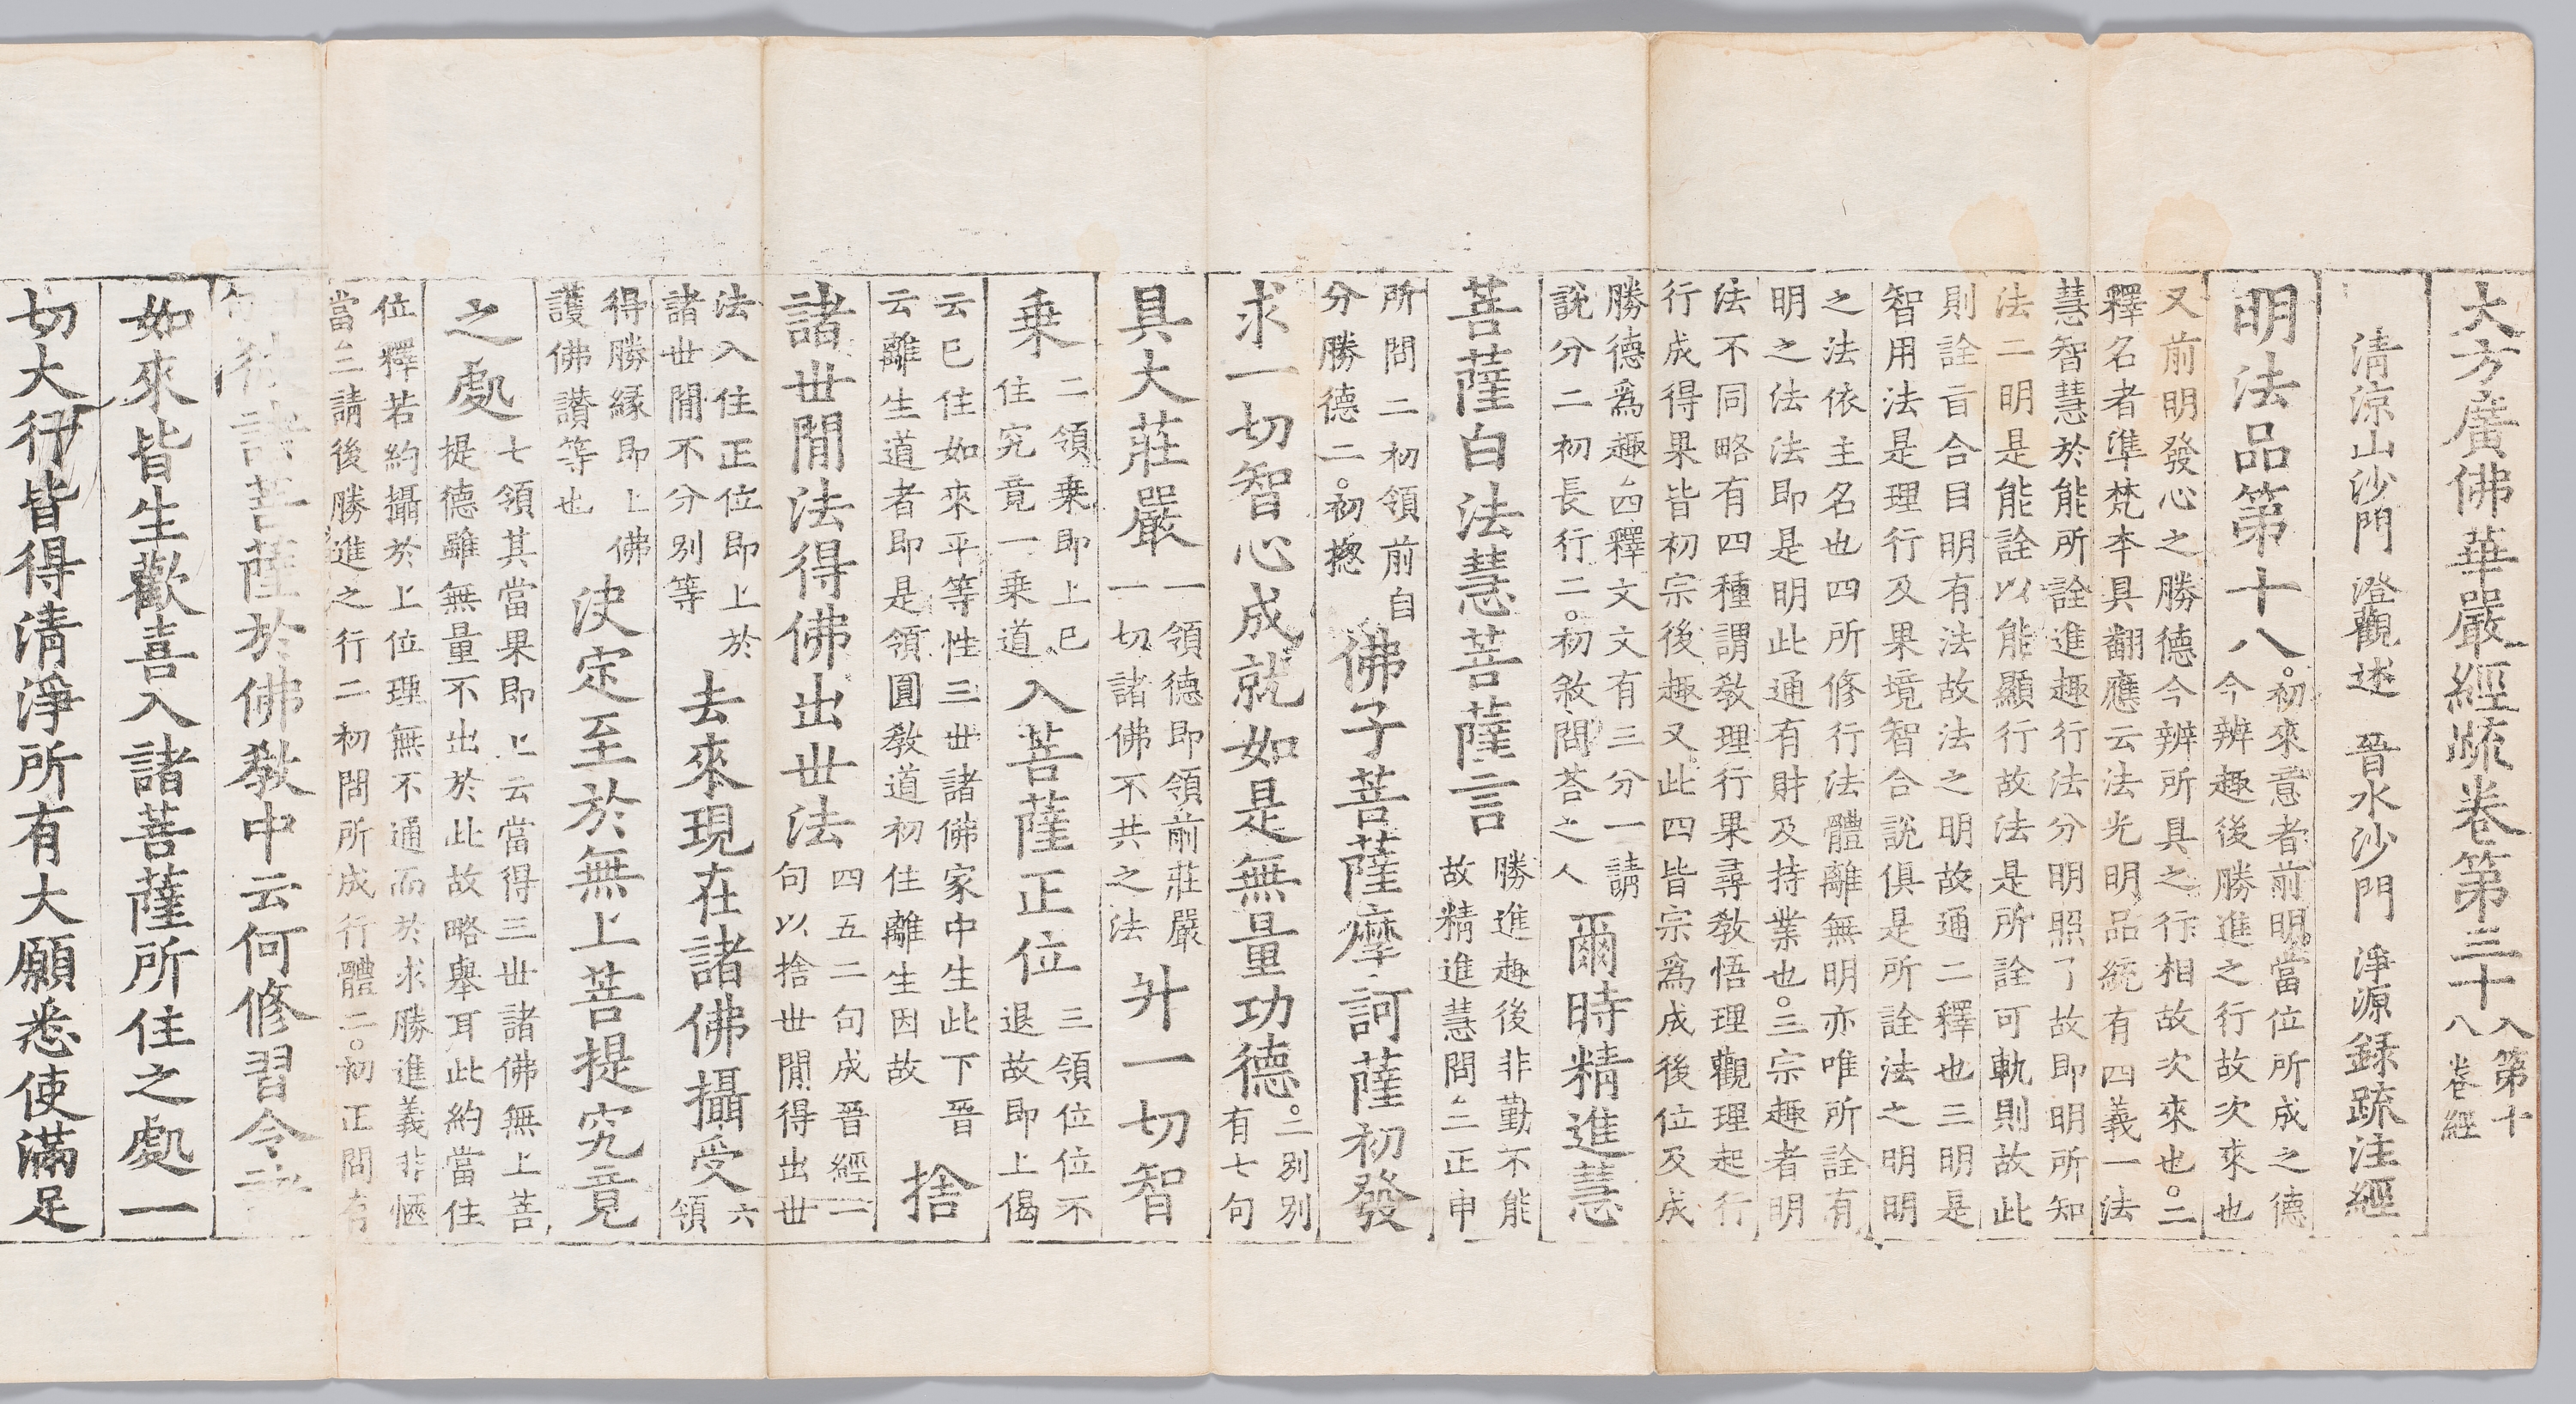 大方廣佛華嚴經疏卷第三十
入第十
八卷經
清涼山沙門 澄觀述 晉水沙門 淨源錄疏注經
明法品第十八。
初來意者前明當位所成之德
今辨趣後勝進之行故次來也
又前明發心之勝德今辨所具之行相故次來也。二
釋名者準梵本具翻應云法光明品統有四義一法
慧智慧於能所詮進趣行法分明照了故即明所知
法二明是能詮以能顯行故法是所詮可軌則故此
則詮旨合目明有法故法之明故通二釋也三明是
智用法是理行及果境智合說俱是所詮法之明明
之法依主名也四所修行法體離無明亦唯所詮有
明之法法即是明此通有財及持業也。三宗趣者明
法不同略有四種謂敎理行果尋敎悟理觀理起行
行成得果皆初宗後趣又此四皆宗爲成後位及成
勝德爲趣△四釋文文有三分一請
說分二初長行二。初敘問荅之人
爾時精進慧
菩薩白法慧菩薩言
勝進趣後非勤不能
故精進慧問△二正申
所問二初領前自
分勝德二。初揔
佛子菩薩摩訶薩初發
求一切智心成就如是無量功德。
二別別
有七句
具大莊嚴
一領德即領前莊嚴
一切諸佛不共之法
升一切智
乗
二領乗即上巳
住究竟一乗道
入菩薩正位
三領位位不
退故即上偈
云巳住如來平等性三世諸佛家中生此下晉
云離生道者即是領圓敎道初住離生因故
捨
諸世間法得佛出世法
四五二句成晉經二
句以捨世間得出世
法入住正位即上於
諸世間不分別等
去來現在諸佛攝受
六
領
得勝緣即上佛
護佛讚等也
決定至於無上菩提究竟
之處
七領其當果即上云當得三世諸佛無上菩
提德雖無量不出於此故略舉耳此約當住
位釋若約攝於上位理無不通而於求勝進義非愜
當△二請後勝進之行二初問所成行體二。初正問有
句
彼諸菩薩於佛敎中云何修習令諸
如來皆生歡喜入諸菩薩所住之處一
切大行皆得清淨所有大願悉使滿足